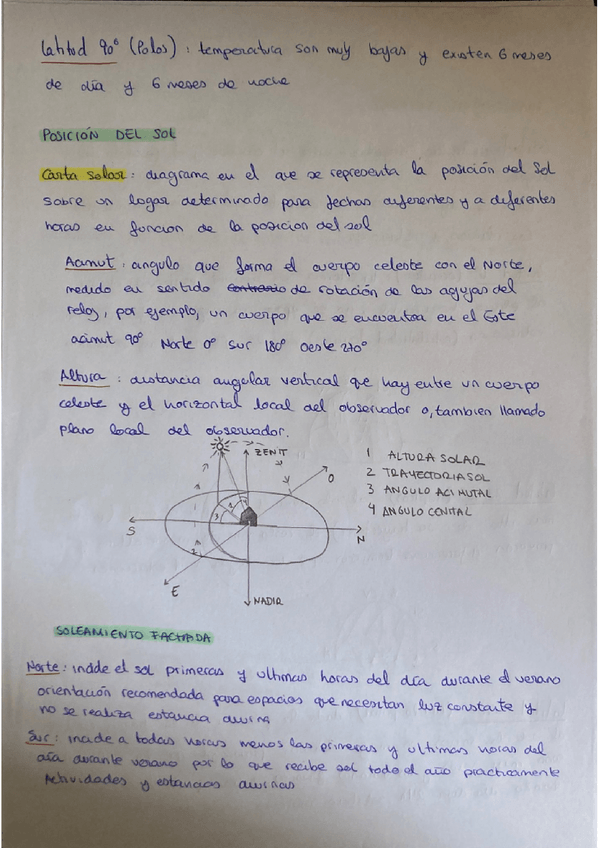 Latitud 90° (Polos): temperatura son muy bajas y existen 6 meses
de día y 6 meses de noche
POSICIÓN DEL SOL
Carta solar: diagrama en el que se representa la posición del Sol
sobre un lugar determinado para fechas diferentes y a diferentes
horas en función de la posicion del sol
Acimut: angulo que forma el cuerpo celeste con el Norte,
medido en sentido contrario de rotación de las agujas del
reloj, por ejemplo, un cuerpo que se encuentra en el Este
acimut 90° Norte 0° Sur 180° Oeste 270°
Altura: distancia angular vertical que hay entre un cuerpo
celeste y el horizontal local del observador o, tambien llamado
plano local del observador.
ZENIT
O
S
N
E
NADIR
1
2
3
4
1 ALTURA SOLAR
2 TRAYECTORIA SOL
3 ANGULO ACIMUTAL
4 ANGULO CENITAL
SOLEAMIENTO FACHADA
Norte: incide el sol primeras y ultimas horas del día durante el verano
orientación recomendada para espacios que necesitan luz constante y
no se realiza estancia diurna
Sur: incide a todas horas menos las primeras y ultimas horas del
día durante verano por lo que recibe sol todo el año practicamente
Actividades y estancias diurnas